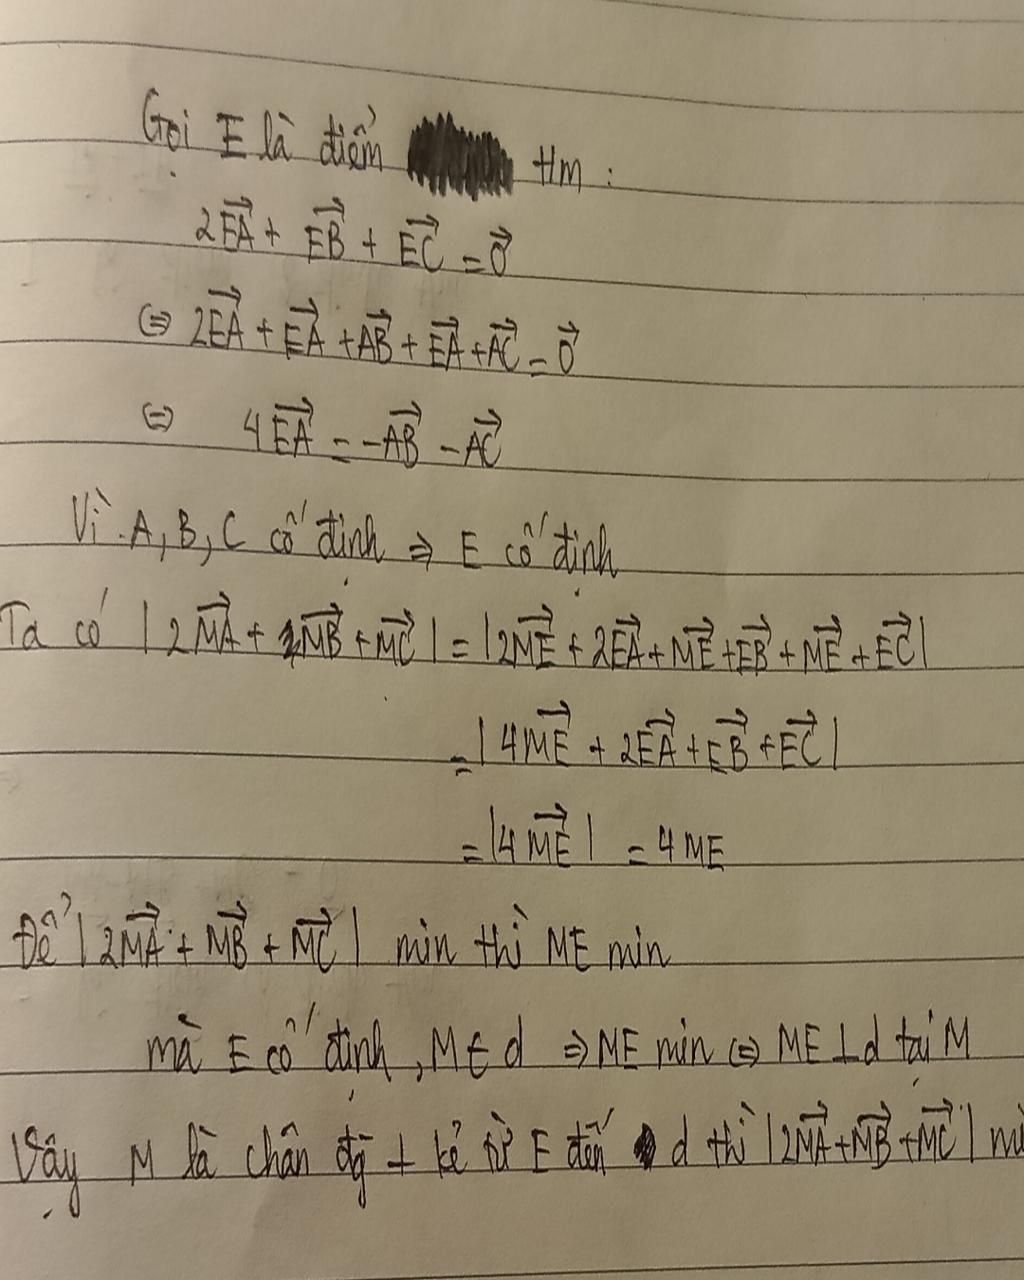 Gọi E là điểm t/m :
2EA + EB + EC = 0
⇔ 2EA + EA + AB + EA + AC = 0
⇔ 4EA = -AB - AC
Vì A, B, C cố định ⇒ E cố định
Ta có | 2MA + MB + MC | = |2ME + 2EA + ME + EB + ME + EC|
= | 4ME + 2EA + EB + EC |
= |4 ME | = 4 ME
Để | 2MA + MB + MC | min thì ME min
mà E cố định , M ∈ d ⇒ ME min ⇔ ME ⊥ d tại M
Vậy M là chân đg ⊥ kẻ từ E đến d thì |2MA + MB + MC |